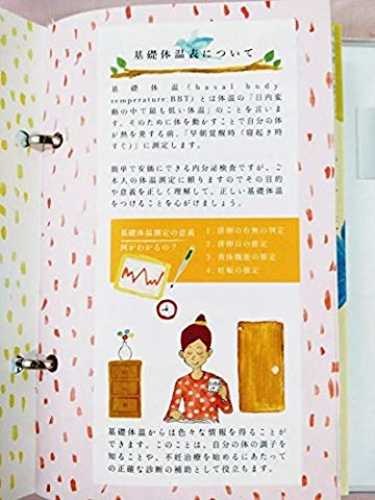 基礎体温表について
基礎体温(basal body
temperature:BBT)とは体温の「日内変
動の中で最も低い体温」のことを言いま
す。そのために体を動かすことで自分の体
が熱を発する前、「早朝覚醒時(寝起き時
すぐ)」に測定します。
簡単で安価にできる内分泌検査ですが、ご
本人の体温測定に頼りますのでその目的
や意義を正しく理解して、正しい基礎体温
をつけることを心がけましょう。
基礎体温測定の意義
何がわかるの?
1. 排卵の有無の判定
2. 排卵日の推定
3. 黄体機能の推定
4. 妊娠の推定
基礎体温からは色々な情報を得ることが
できます。このことは、自分の体の調子を
知ることや、不妊治療を始めるにあたって
の正確な診断の補助として役立ちます。